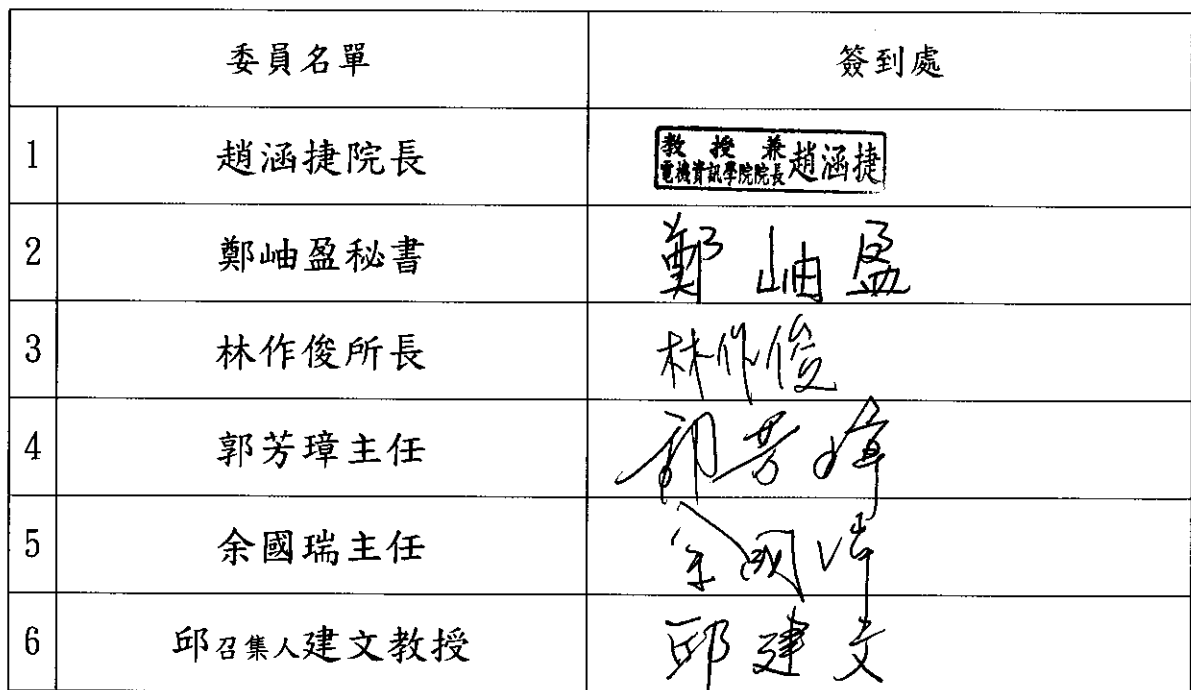 委員名單 簽到處
1 趙涵捷院長 教授兼電機資訊學院院長 趙涵捷
2 鄭岫盈秘書 鄭岫盈
3 林作俊所長 林作俊
4 郭芳璋主任 郭芳璋
5 余國瑞主任 余國瑞
6 邱召集人建文教授 邱建文